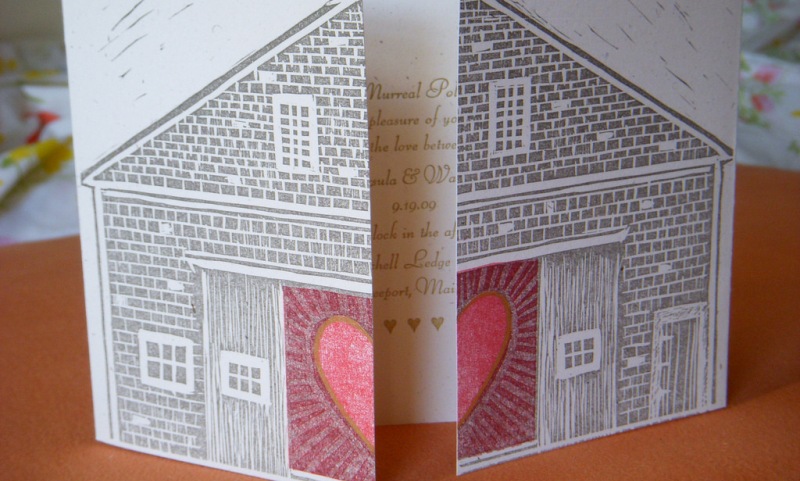 Murreal Pol
pleasure of yo
the love betwe
sula & Wa
9.19.09
lock in the af
hell Ledge
eeport, Mai